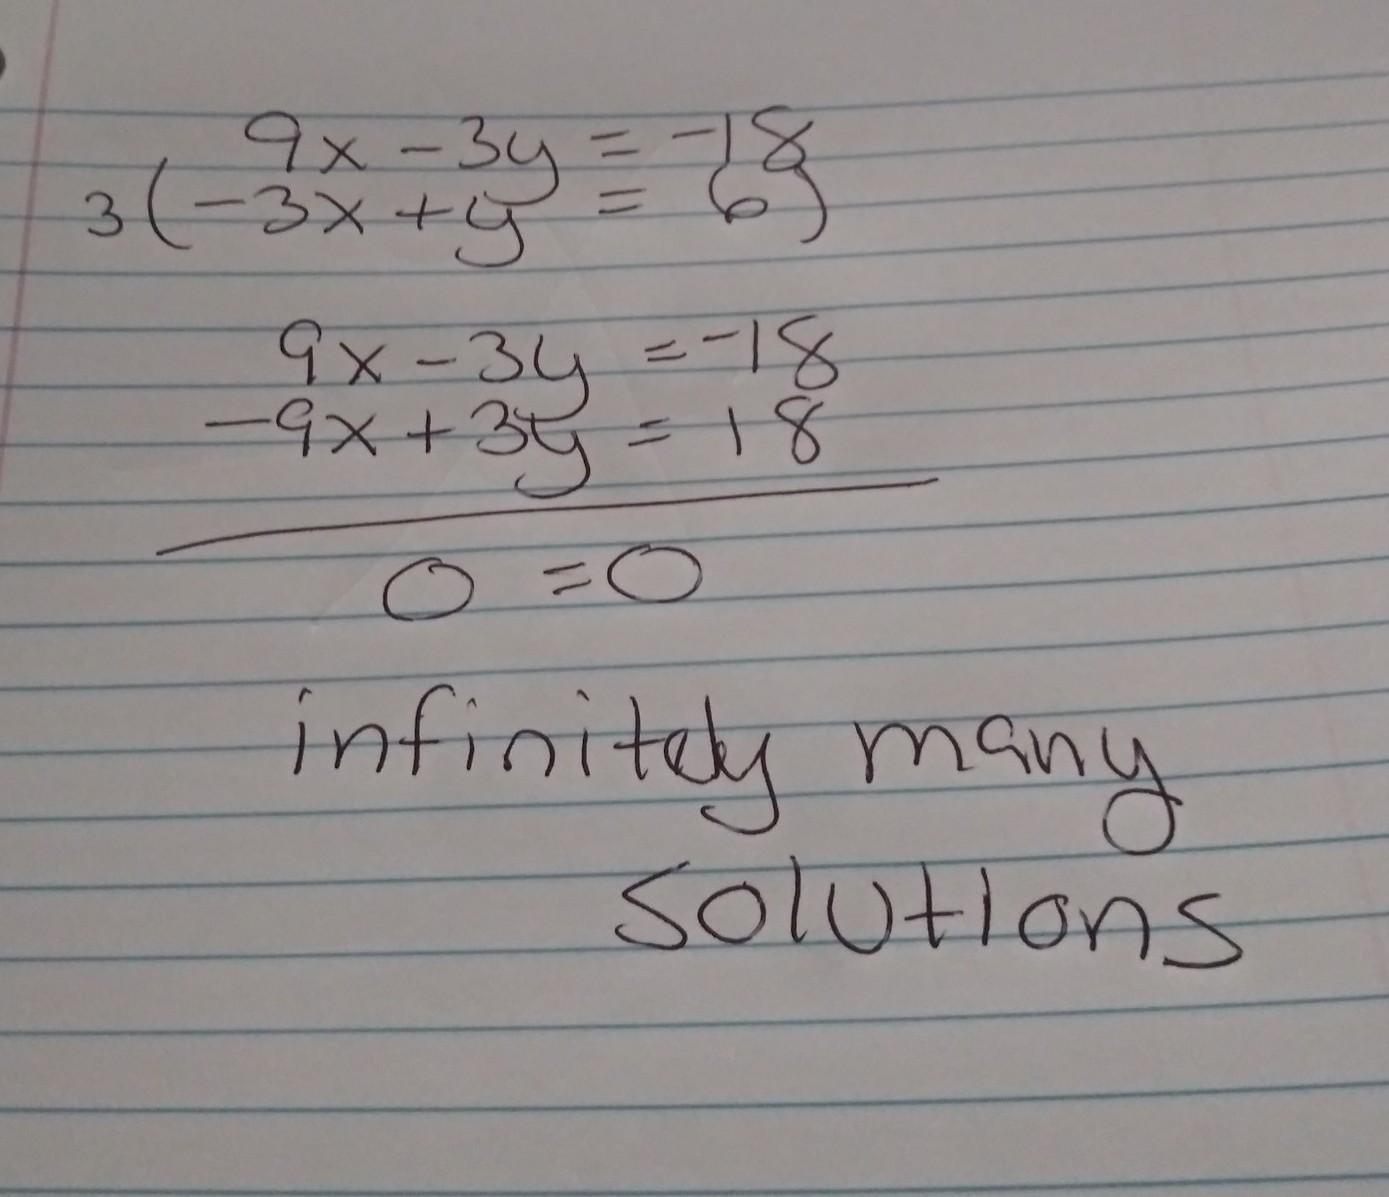 9x - 3y = -18
3(-3x + y = 6)
9x - 3y = -18
-9x + 3y = 18
0 = 0
infinitely many
solutions